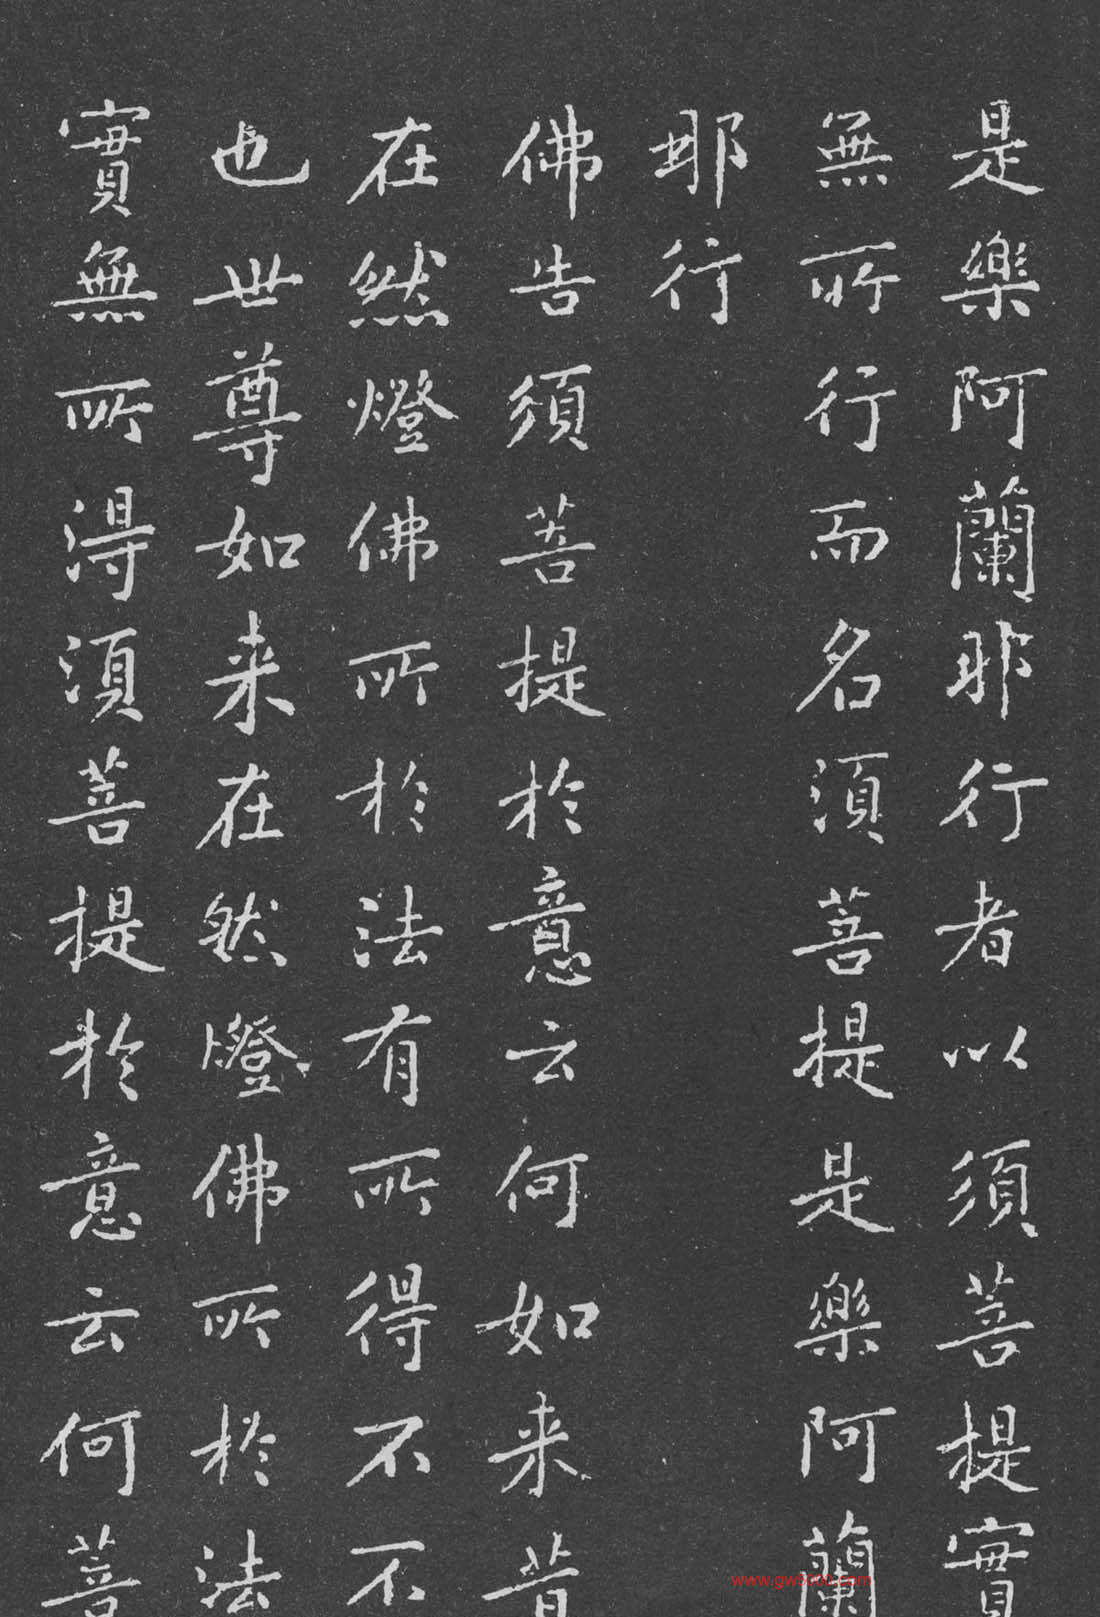 是樂阿蘭耶行者以須菩提實
無所行而名須菩提是樂阿蘭
耶行
佛告須菩提於意云何如来昔
在然燈佛所於法有所得不不
也世尊如来在然燈佛所於法
實無所得須菩提於意云何菩
www.gw5500.com